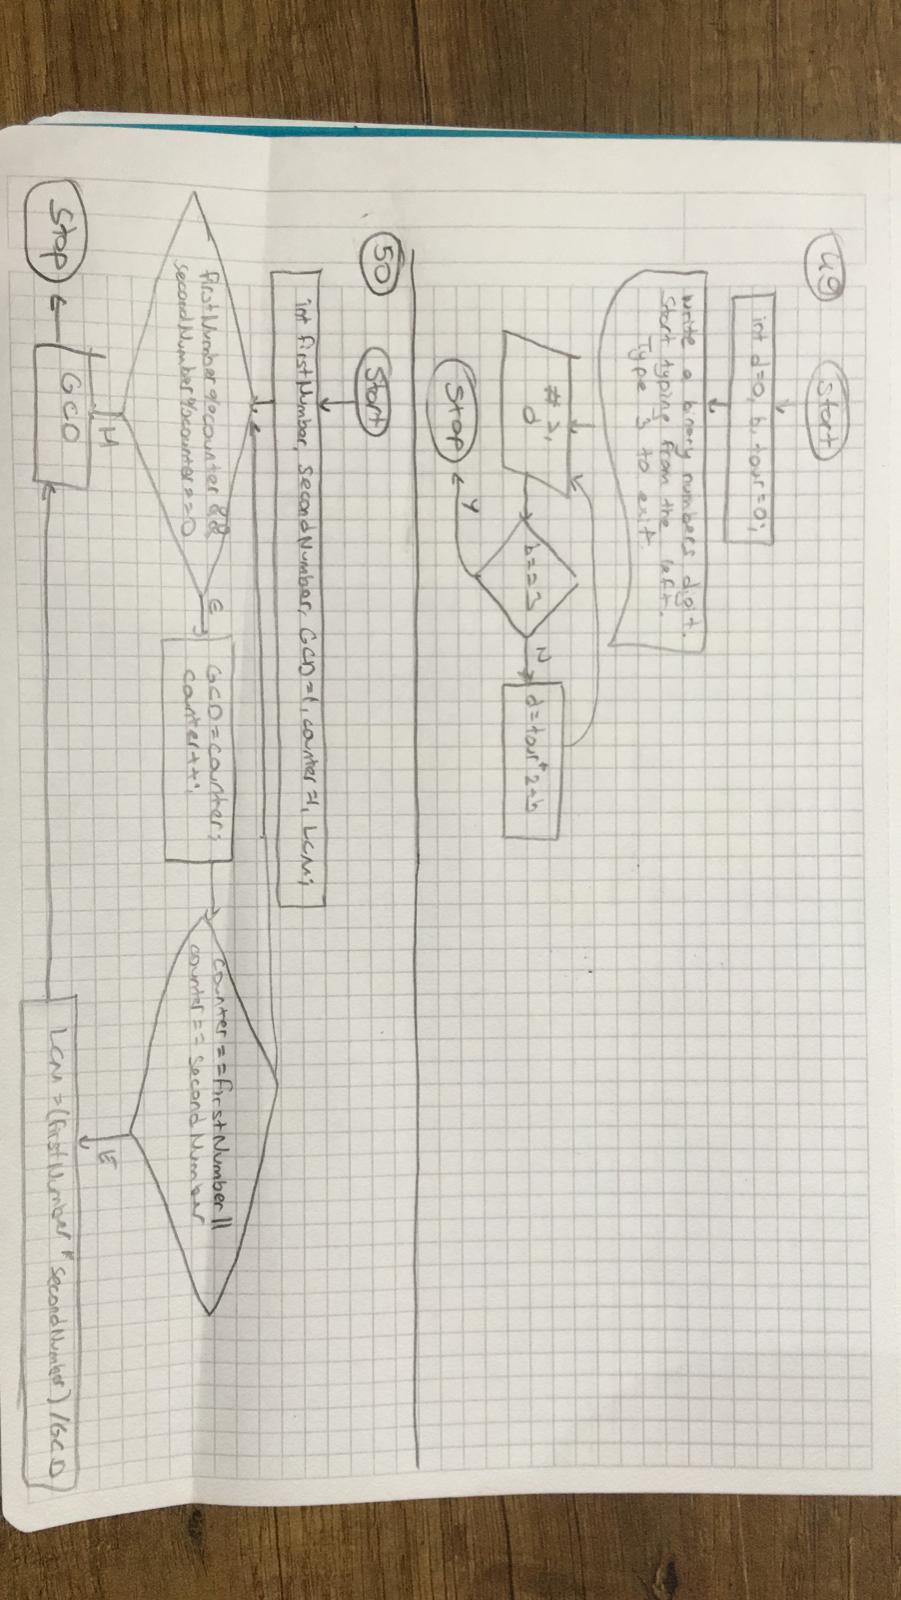 49
Start
int d=0, b, tour=0;
Write a binary numbers digit.
Start typing from the left.
Type 3 to exit.
d
b==3
Y
N
d=tour*2+b
Stop
50
Start
int firstNumber, secondNumber, GCD=1, counter=1, LCM;
firstNumber%counter &&
secondNumber%counter==0
E
H
GCD=counter;
counter++;
counter==firstNumber||
counter==secondNumber
E
LCM=(firstNumber*secondNumber)/GCD
GCD
Stop